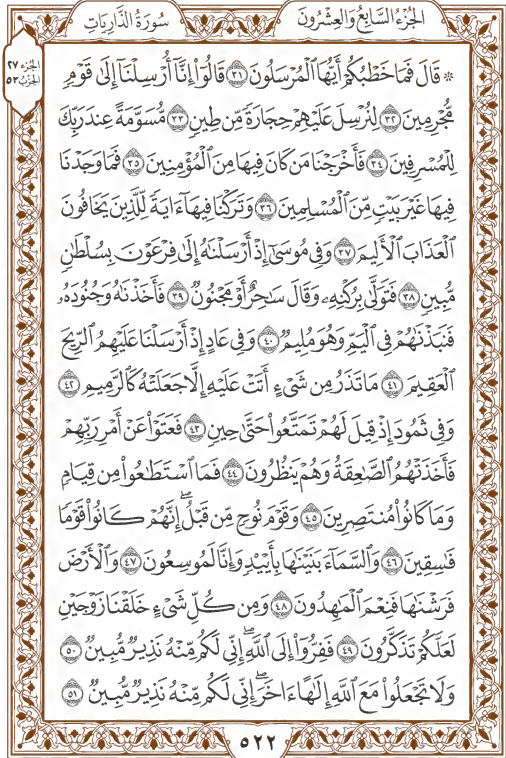 سُورَةُ الذَّارِيَاتِ الجُزْءُ السَّابِعُ وَالعِشْرُونَ
الجزء ٢٧
الحزب ٥٣
۞ قَالَ فَمَا خَطْبُكُمْ أَيُّهَا الْمُرْسَلُونَ ٣١ قَالُوٓا۟ إِنَّآ أُرْسِلْنَآ إِلَىٰ قَوْمٍ
مُّجْرِمِينَ ٣٢ لِنُرْسِلَ عَلَيْهِمْ حِجَارَةً مِّن طِينٍ ٣٣ مُّسَوَّمَةً عِندَ رَبِّكَ
لِلْمُسْرِفِينَ ٣٤ فَأَخْرَجْنَا مَن كَانَ فِيهَا مِنَ ٱلْمُؤْمِنِينَ ٣٥ فَمَا وَجَدْنَا
فِيهَا غَيْرَ بَيْتٍ مِّنَ ٱلْمُسْلِمِينَ ٣٦ وَتَرَكْنَا فِيهَآ ءَايَةً لِّلَّذِينَ يَخَافُونَ
ٱلْعَذَابَ ٱلْأَلِيمَ ٣٧ وَفِى مُوسَىٰٓ إِذْ أَرْسَلْنَٰهُ إِلَىٰ فِرْعَوْنَ بِسُلْطَٰنٍ
مُّبِينٍ ٣٨ فَتَوَلَّىٰ بِرُكْنِهِۦ وَقَالَ سَٰحِرٌ أَوْ مَجْنُونٌ ٣٩ فَأَخَذْنَٰهُ وَجُنُودَهُۥ
فَنَبَذْنَٰهُمْ فِى ٱلْيَمِّ وَهُوَ مُلِيمٌ ٤٠ وَفِى عَادٍ إِذْ أَرْسَلْنَا عَلَيْهِمُ ٱلرِّيحَ
ٱلْعَقِيمَ ٤١ مَا تَذَرُ مِن شَىْءٍ أَتَتْ عَلَيْهِ إِلَّا جَعَلَتْهُ كَٱلرَّمِيمِ ٤٢
وَفِى ثَمُودَ إِذْ قِيلَ لَهُمْ تَمَتَّعُوا۟ حَتَّىٰ حِينٍ ٤٣ فَعَتَوْا۟ عَنْ أَمْرِ رَبِّهِمْ
فَأَخَذَتْهُمُ ٱلصَّٰعِقَةُ وَهُمْ يَنظُرُونَ ٤٤ فَمَا ٱسْتَطَٰعُوا۟ مِن قِيَامٍ
وَمَا كَانُوا۟ مُنتَصِرِينَ ٤٥ وَقَوْمَ نُوحٍ مِّن قَبْلُ ۖ إِنَّهُمْ كَانُوا۟ قَوْمًا
فَٰسِقِينَ ٤٦ وَٱلسَّمَآءَ بَنَيْنَٰهَا بِأَيْي۟دٍ وَإِنَّا لَمُوسِعُونَ ٤٧ وَٱلْأَرْضَ
فَرَشْنَٰهَا فَنِعْمَ ٱلْمَٰهِدُونَ ٤٨ وَمِن كُلِّ شَىْءٍ خَلَقْنَا زَوْجَيْنِ
لَعَلَّكُمْ تَذَكَّرُونَ ٤٩ فَفِرُّوٓا۟ إِلَى ٱللَّهِ ۖ إِنِّى لَكُم مِّنْهُ نَذِيرٌ مُّبِينٌ ٥٠
وَلَا تَجْعَلُوا۟ مَعَ ٱللَّهِ إِلَٰهًا ءَاخَرَ ۖ إِنِّى لَكُم مِّنْهُ نَذِيرٌ مُّبِينٌ ٥١
٥٢٢